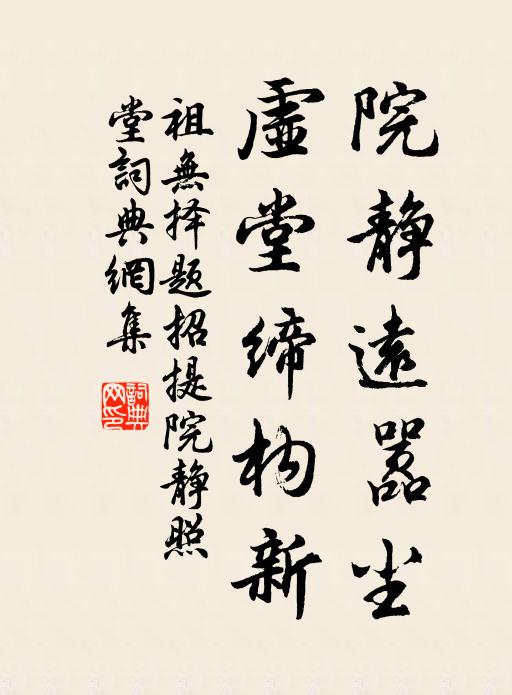 院静遠嚣尘
虚堂缔构新
祖無择题招提院静照
堂詞典網集
詞典
网印